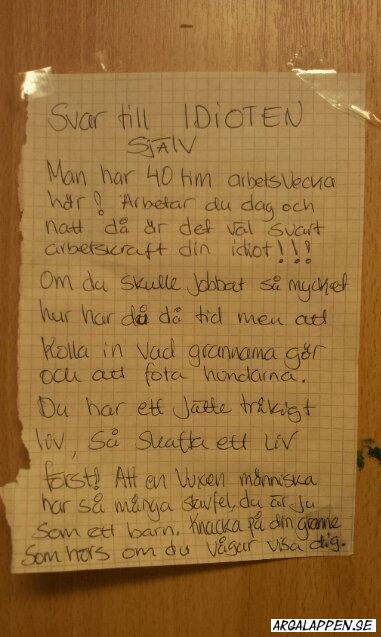 Svar till IDIOTEN
SJÄLV
Man har 40 tim arbetsvecka
här! Arbetar du dag och
natt då är det väl svart
arbetskraft din idiot!!!
Om du skulle jobbat så mycket
hur har du då tid men att
Kolla in vad grannarna gör
och att fota hundarna.
Du har ett jätte tråkigt
liv, så skaffa ett liv
först! Att en vuxen människa
har så många stavfel, du är ju
som ett barn. Knacka på din granne
som hörs om du vågar visa dig.
ARGALAPPEN.SE